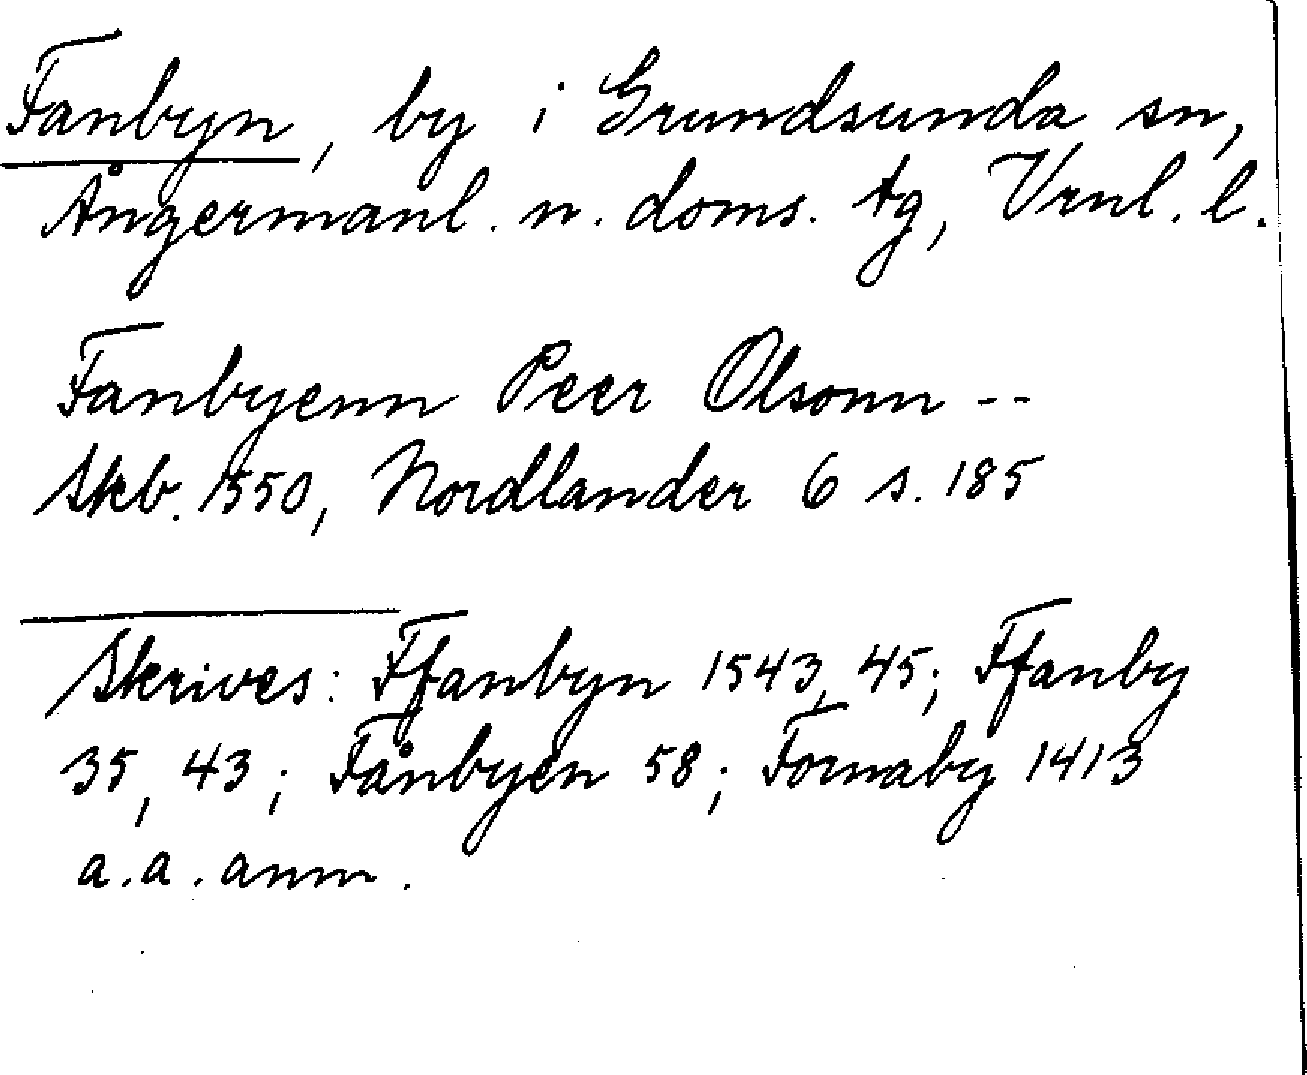 Fanbyn, by i Grundsunda sn,
Ångermanl. n. doms. tg, Vrnl. l.
Fanbyenn Peer Olsonn --
Skb. 1550, Nordlander 6 s. 185
Skrives: Ffanbyn 1543, 45; Ffanby
35, 43; Fånbyen 58; Fornaby 1413
a.a. anm.